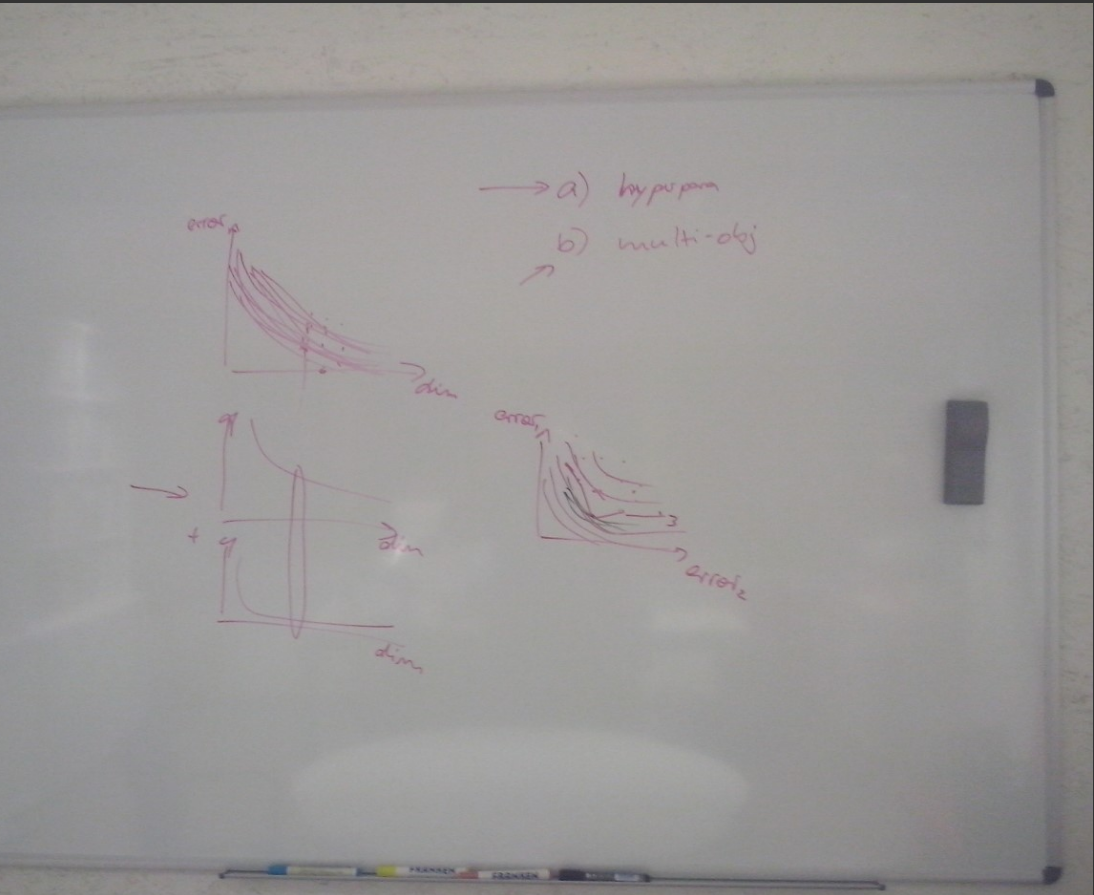 a) hyperpara
b) multi-obj
error
dim
dim
dim
error₁
3
error₂
FRANKEN
FRANKEN